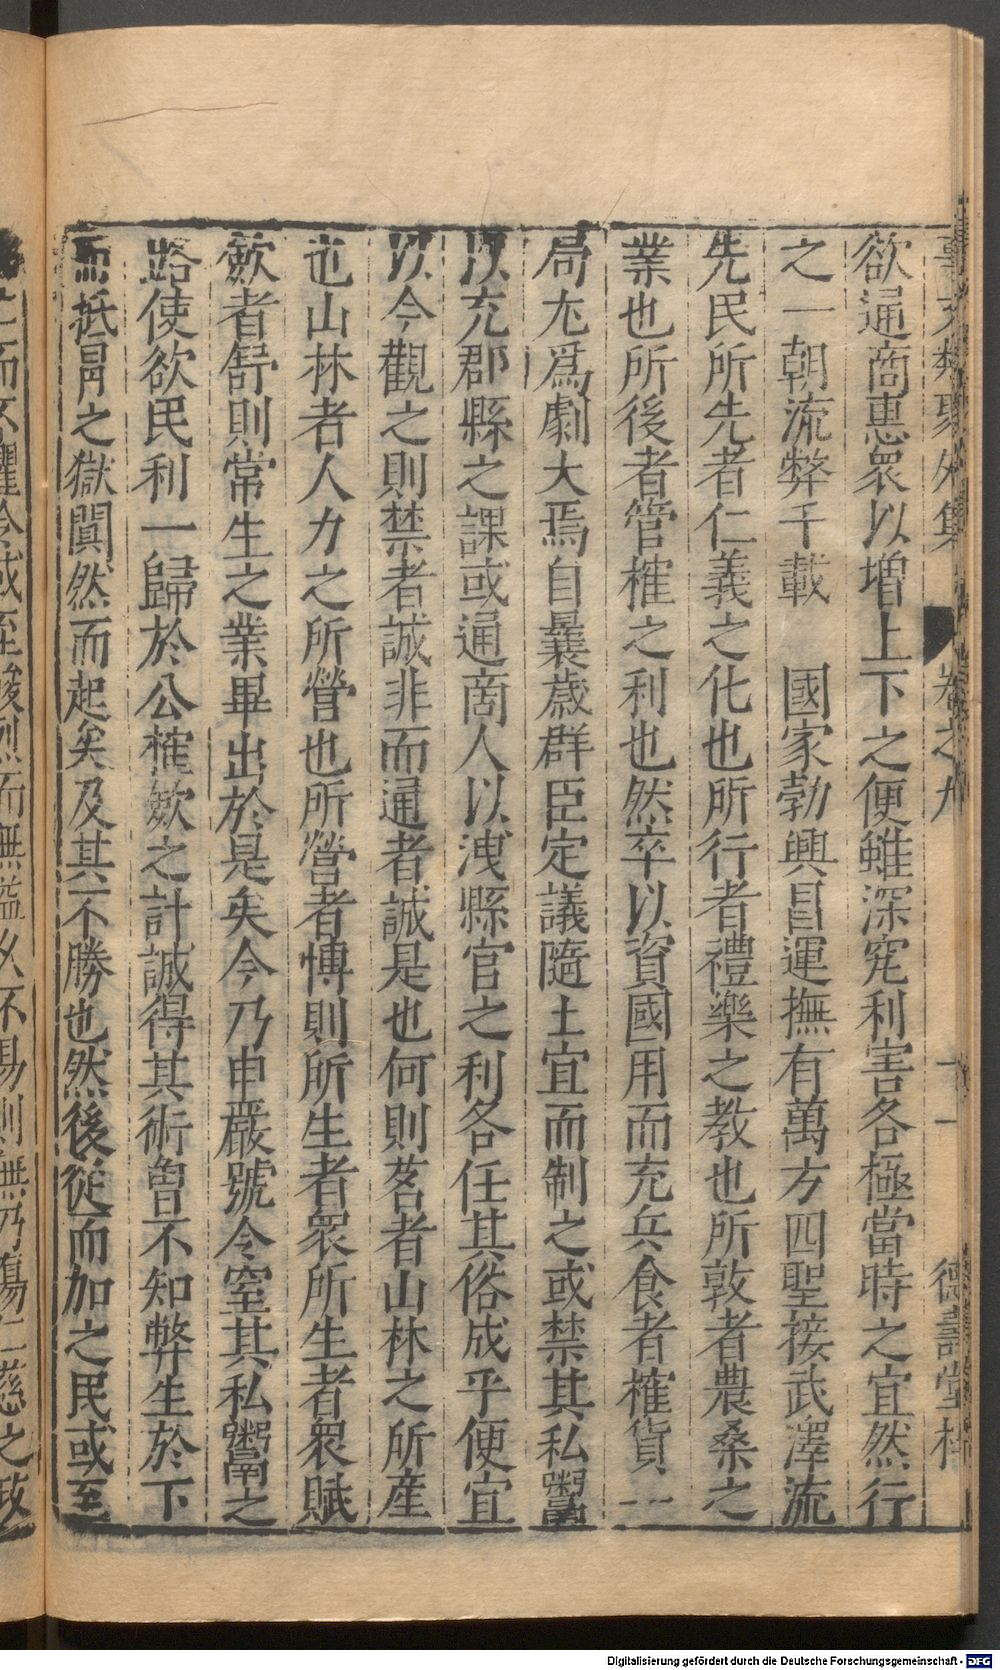 事文類聚外集 卷之九 十一 德壽堂梓
欲通商惠衆以增上下之便雖深究利害各極當時之宜然行
之一朝流弊千載　國家勃興昌運撫有萬方四聖接武澤流
先民所先者仁義之化也所行者禮樂之教也所敦者農桑之
業也所後者管榷之利也然卒以資國用而充兵食者榷貨一
局尤爲劇大焉自曩歲群臣定議隨土宜而制之或禁其私鬻
以充郡縣之課或通啇人以洩縣官之利各任其俗成乎便宜
以今觀之則禁者誠非而通者誠是也何則茗者山林之所産
也山林者人力之所營也所營者慱則所生者衆所生者衆賦
歛者舒則常生之業畢出於是矣今乃申嚴號令窒其私鬻之
路使欲民利一歸於公榷歛之計誠得其術曾不知弊生於下
而抵冒之獄闐然而起矣及其不勝也然後從而加之民或至
而不 今或至 烈而無 以不 則無乃傷仁慈之政
Digitalisierung gefördert durch die Deutsche Forschungsgemeinschaft - DFG